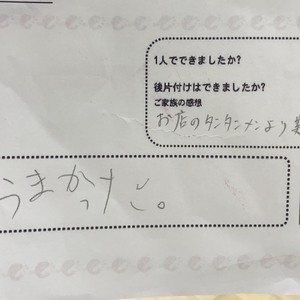 1人でできましたか?
後片付けはできましたか?
ご家族の感想
お店のタンタンメンより
うまかっけど。